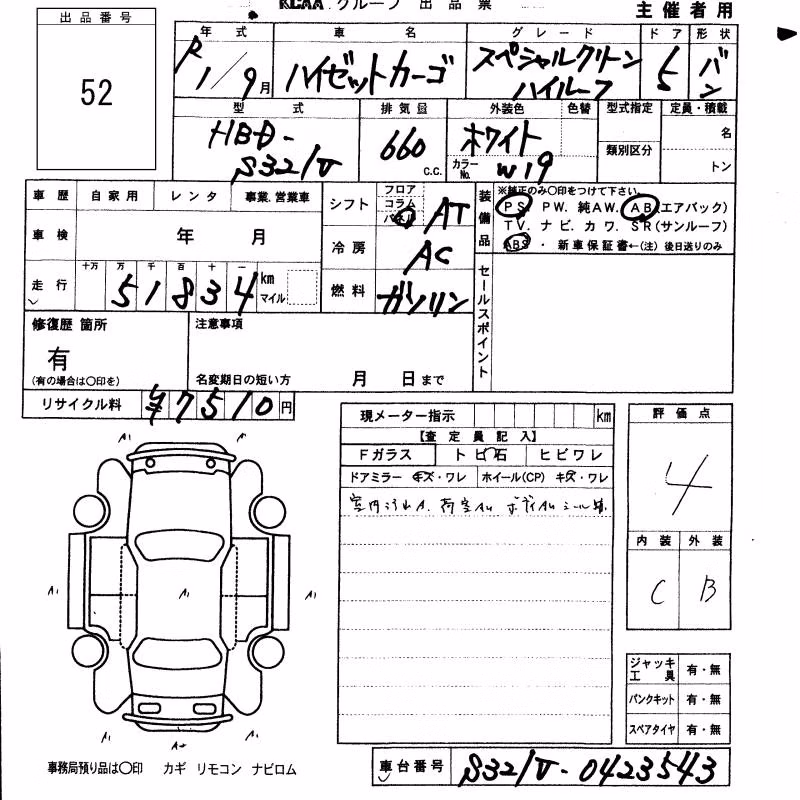 KCAA グループ 出品票
主催者用
出品番号
52
年式 車名 グレード ドア 形状
R 1/9月 ハイゼットカーゴ スペシャルクリーン ハイルーフ 5 バン
型式 排気量 外装色 色替 型式指定 定員・積載
HBD-S321V 660 c.c. ホワイト カラーNo. W19 類別区分 名 トン
車歴 自家用 レンタ 事業.営業車
車検 年 月
走行 十万 万 千 百 十 一 51834 km マイル
シフト フロア コラム パネル AT
冷房 AC
燃料 ガソリン
装備品
※純正のみ〇印をつけて下さい。
PS. PW. 純AW. AB(エアバック)
TV. ナビ. カワ. SR(サンルーフ)
ABS・新車保証書←(注)後日送りのみ
セールスポイント
修復歴 箇所
有
(有の場合は〇印を)
注意事項
名変期日の短い方 月 日まで
リサイクル料 ¥7510円
現メーター指示 km
【査定員記入】
Fガラス トビ石 ヒビワレ
ドアミラー キズ・ワレ ホイール(CP) キズ・ワレ
評価点
4
内装 外装
C B
A1 A1
A1 A1 A1
A1 A1
ジャッキ工具 有・無
パンクキット 有・無
スペアタイヤ 有・無
事務局預り品は〇印 カギ リモコン ナビロム
車台番号 S321V-0423543